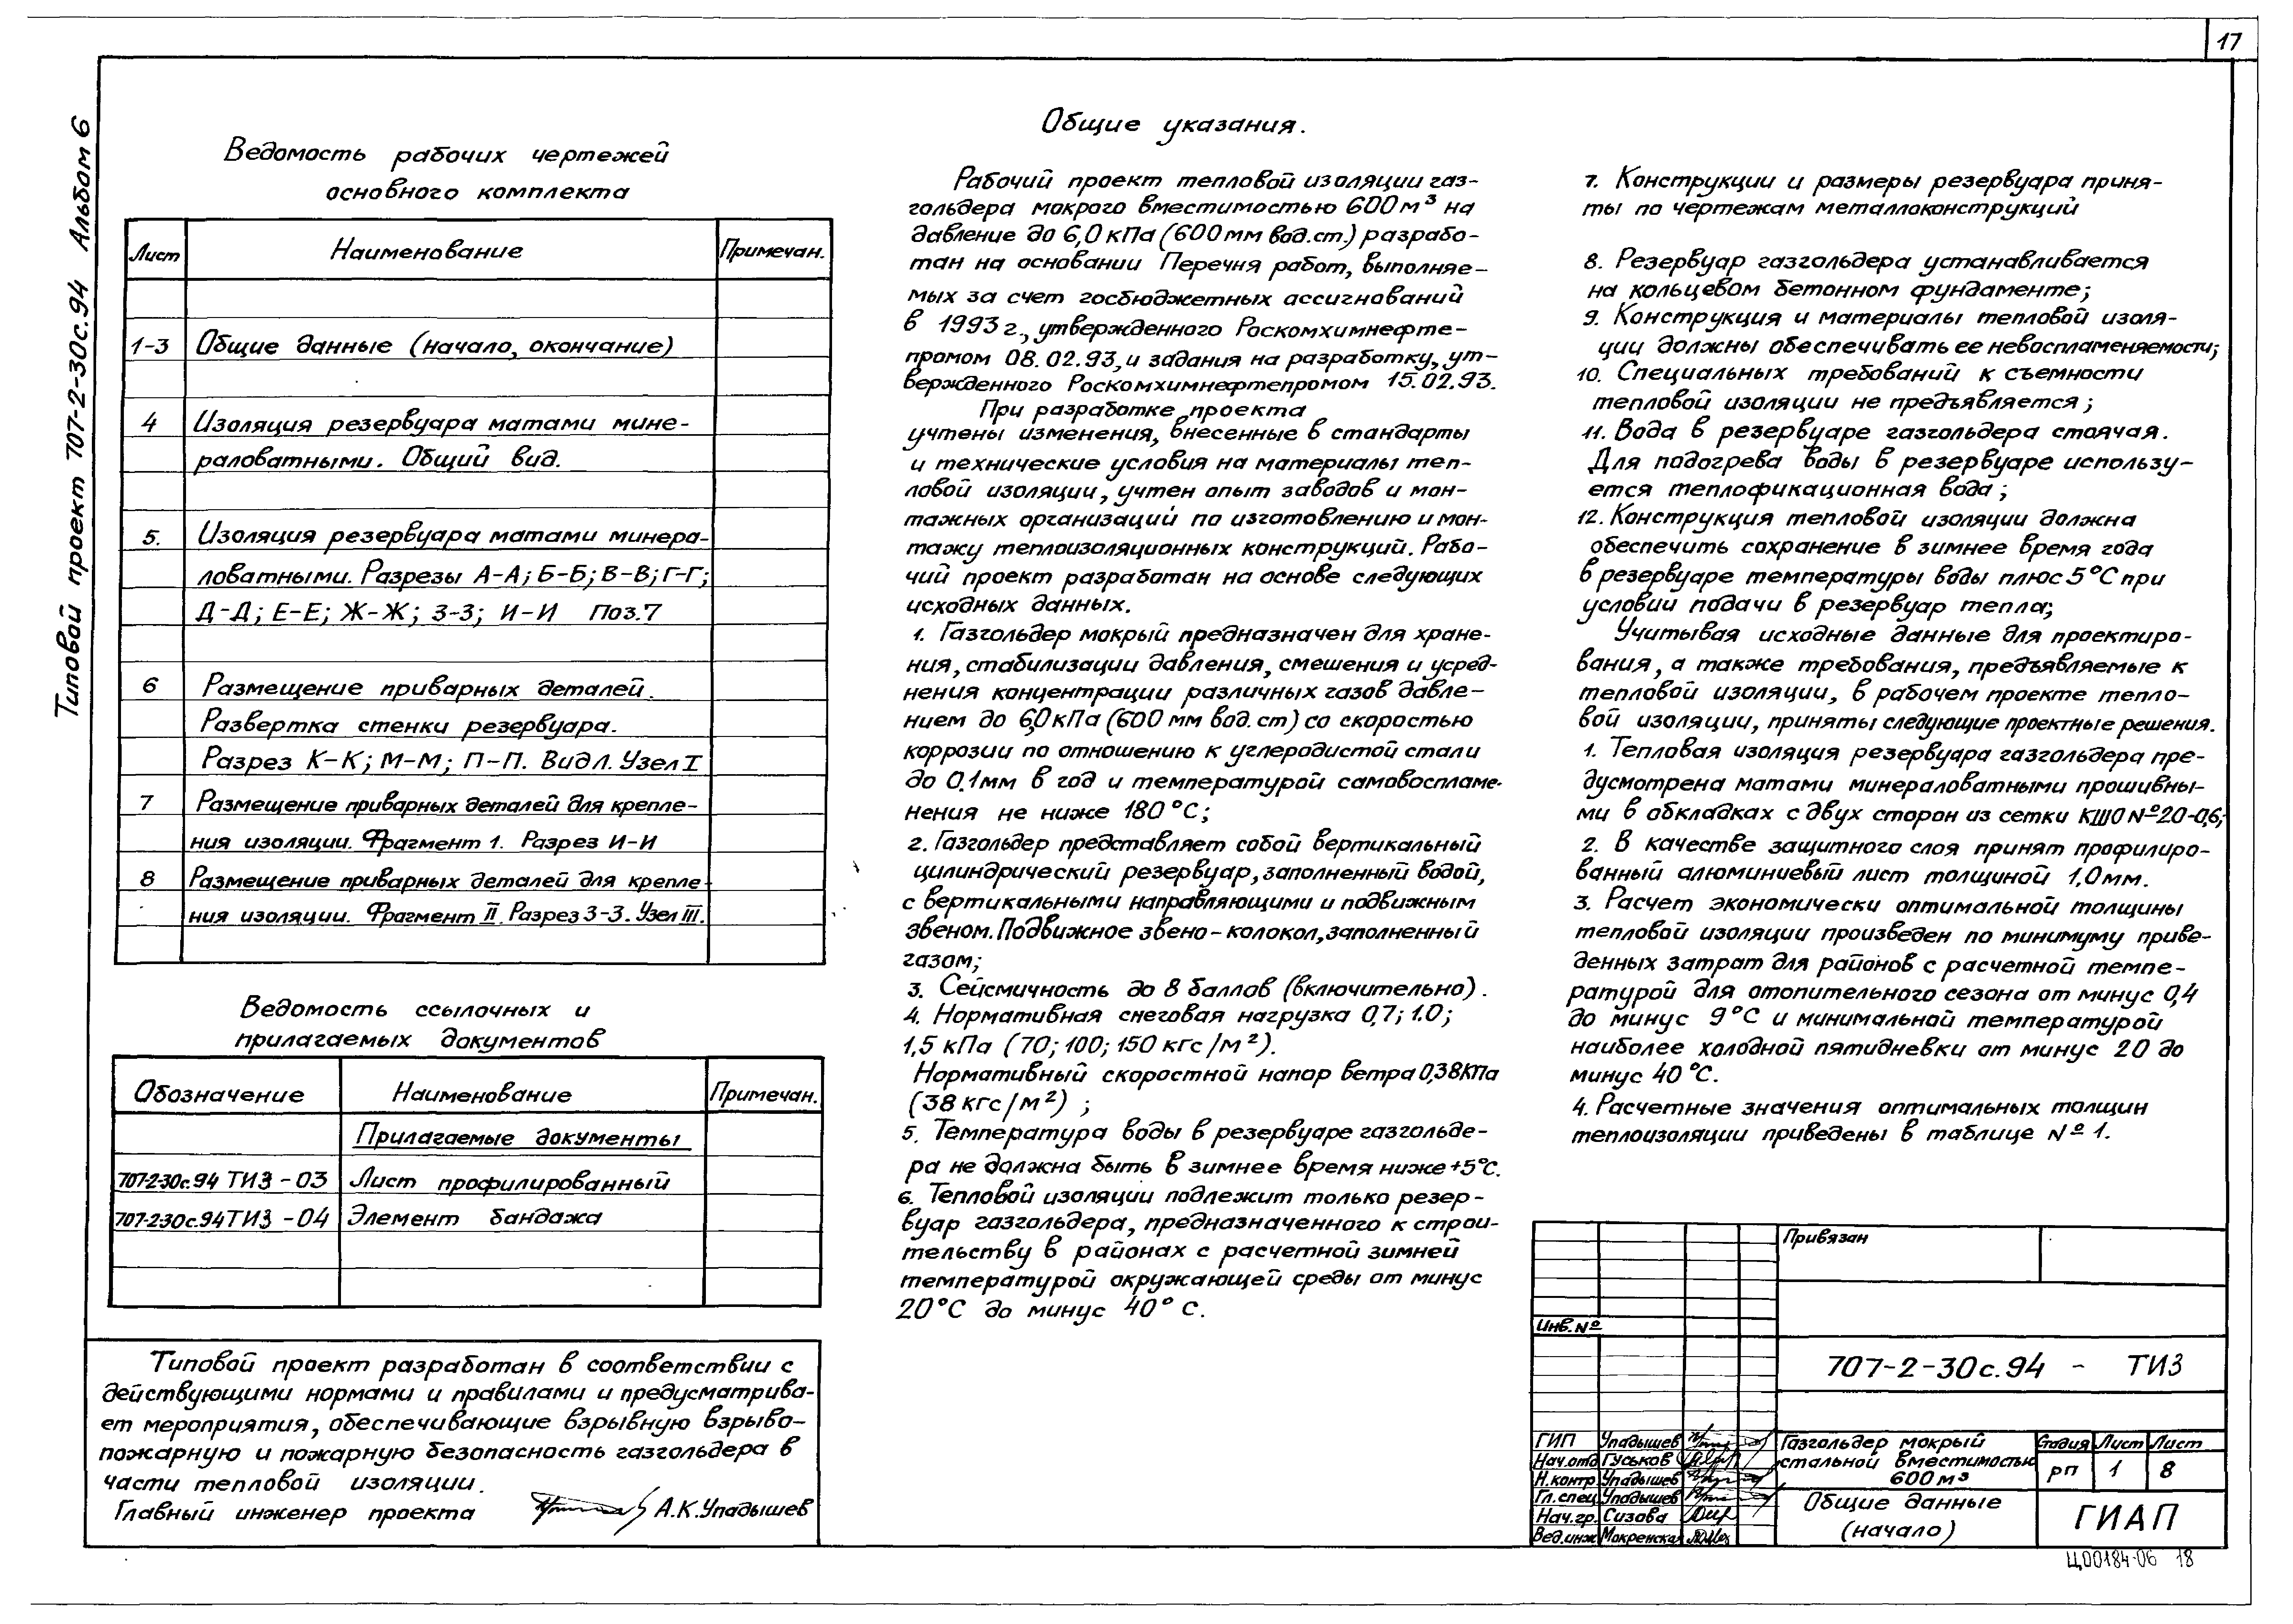 17
Типовой проект 707-2-30с.94 Альбом 6
Ведомость рабочих чертежей
основного комплекта
Лист Наименование Примечан.
1-3 Общие данные (начало, окончание)
4 Изоляция резервуара матами мине-
раловатными. Общий вид.
5. Изоляция резервуара матами минера-
ловатными. Разрезы А-А; Б-Б; В-В; Г-Г;
Д-Д; Е-Е; Ж-Ж; З-З; И-И Поз.7
6 Размещение приварных деталей.
Развертка стенки резервуара.
Разрез К-К; М-М; П-П. Вид Л. Узел I
7 Размещение приварных деталей для крепле-
ния изоляции. Фрагмент 1. Разрез И-И
8 Размещение приварных деталей для крепле-
ния изоляции. Фрагмент II. Разрез З-З. Узел III.
Ведомость ссылочных и
прилагаемых документов
Обозначение Наименование Примечан.
Прилагаемые документы
707-2-30с.94 ТИЗ-03 Лист профилированный
707-2-30с.94 ТИЗ-04 Элемент бандажа
Типовой проект разработан в соответствии с
действующими нормами и правилами и предусматрива-
ет мероприятия, обеспечивающие взрывную взрыво-
пожарную и пожарную безопасность газгольдера в
части тепловой изоляции.
Главный инженер проекта А.К.Упадышев
Общие указания.
Рабочий проект тепловой изоляции газ-
гольдера мокрого вместимостью 600 м³ на
давление до 6,0 кПа (600 мм вод.ст.) разрабо-
тан на основании Перечня работ, выполняе-
мых за счет госбюджетных ассигнований
в 1993 г., утвержденного Роскомхимнефте-
промом 08.02.93, и задания на разработку, ут-
вержденного Роскомхимнефтепромом 15.02.93.
При разработке проекта
учтены изменения, внесенные в стандарты
и технические условия на материалы теп-
ловой изоляции, учтен опыт заводов и мон-
тажных организаций по изготовлению и мон-
тажу теплоизоляционных конструкций. Рабо-
чий проект разработан на основе следующих
исходных данных.
1. Газгольдер мокрый предназначен для хране-
ния, стабилизации давления, смешения и усред-
нения концентрации различных газов давле-
нием до 6,0 кПа (600 мм вод. ст) со скоростью
коррозии по отношению к углеродистой стали
до 0,1мм в год и температурой самовоспламе-
нения не ниже 180°С;
2. Газгольдер представляет собой вертикальный
цилиндрический резервуар, заполненный водой,
с вертикальными направляющими и подвижным
звеном. Подвижное звено - колокол, заполненный
газом;
3. Сейсмичность до 8 баллов (включительно).
4. Нормативная снеговая нагрузка 0,7; 1.0;
1,5 кПа (70; 100; 150 кгс/м²).
Нормативный скоростной напор ветра 0,38КПа
(38 кгс/м²) ;
5. Температура воды в резервуаре газгольде-
ра не должна быть в зимнее время ниже +5°С.
6. Тепловой изоляции подлежит только резер-
вуар газгольдера, предназначенного к строи-
тельству в районах с расчетной зимней
температурой окружающей среды от минус
20°С до минус 40° С.
7. Конструкции и размеры резервуара приня-
ты по чертежам металлоконструкций
8. Резервуар газгольдера устанавливается
на кольцевом бетонном фундаменте;
9. Конструкция и материалы тепловой изоля-
ции должны обеспечивать ее невоспламеняемости;
10. Специальных требований к съемности
тепловой изоляции не предъявляется;
11. Вода в резервуаре газгольдера стоячая.
Для подогрева воды в резервуаре использу-
ется теплофикационная вода;
12. Конструкция тепловой изоляции должна
обеспечить сохранение в зимнее время года
в резервуаре температуры воды плюс 5°С при
условии подачи в резервуар тепла;
Учитывая исходные данные для проектиро-
вания, а также требования, предъявляемые к
тепловой изоляции, в рабочем проекте тепло-
вой изоляции, приняты следующие проектные решения.
1. Тепловая изоляция резервуара газгольдера пре-
дусмотрена матами минераловатными прошивны-
ми в обкладках с двух сторон из сетки КШО №20-0,6;
2. В качестве защитного слоя принят профилиро-
ванный алюминиевый лист толщиной 1,0мм.
3. Расчет экономически оптимальной толщины
тепловой изоляции произведен по минимуму приве-
денных затрат для районов с расчетной темпе-
ратурой для отопительного сезона от минус 0,4
до минус 9°С и минимальной температурой
наиболее холодной пятидневки от минус 20 до
минус 40°С.
4. Расчетные значения оптимальных толщин
теплоизоляции приведены в таблице №1.
Привязан
Инв.№
707-2-30с.94 - ТИЗ
ГИП Упадышев
Нач.отд Гуськов
Н.контр Упадышев
Гл.спец Упадышев
Нач.гр. Сизова
Вед.инж Мокренская
Газгольдер мокрый
стальной вместимостью
600 м³
Стадия Лист Лист
РП 1 8
Общие данные
(начало)
ГИАП
Ц00184-06 18